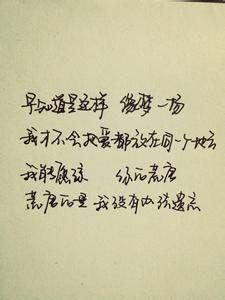 早知道是这样 像梦一场
我才不会把爱都放在同一个地方
我能原谅 你的荒唐
荒唐的是 我没有办法遗忘